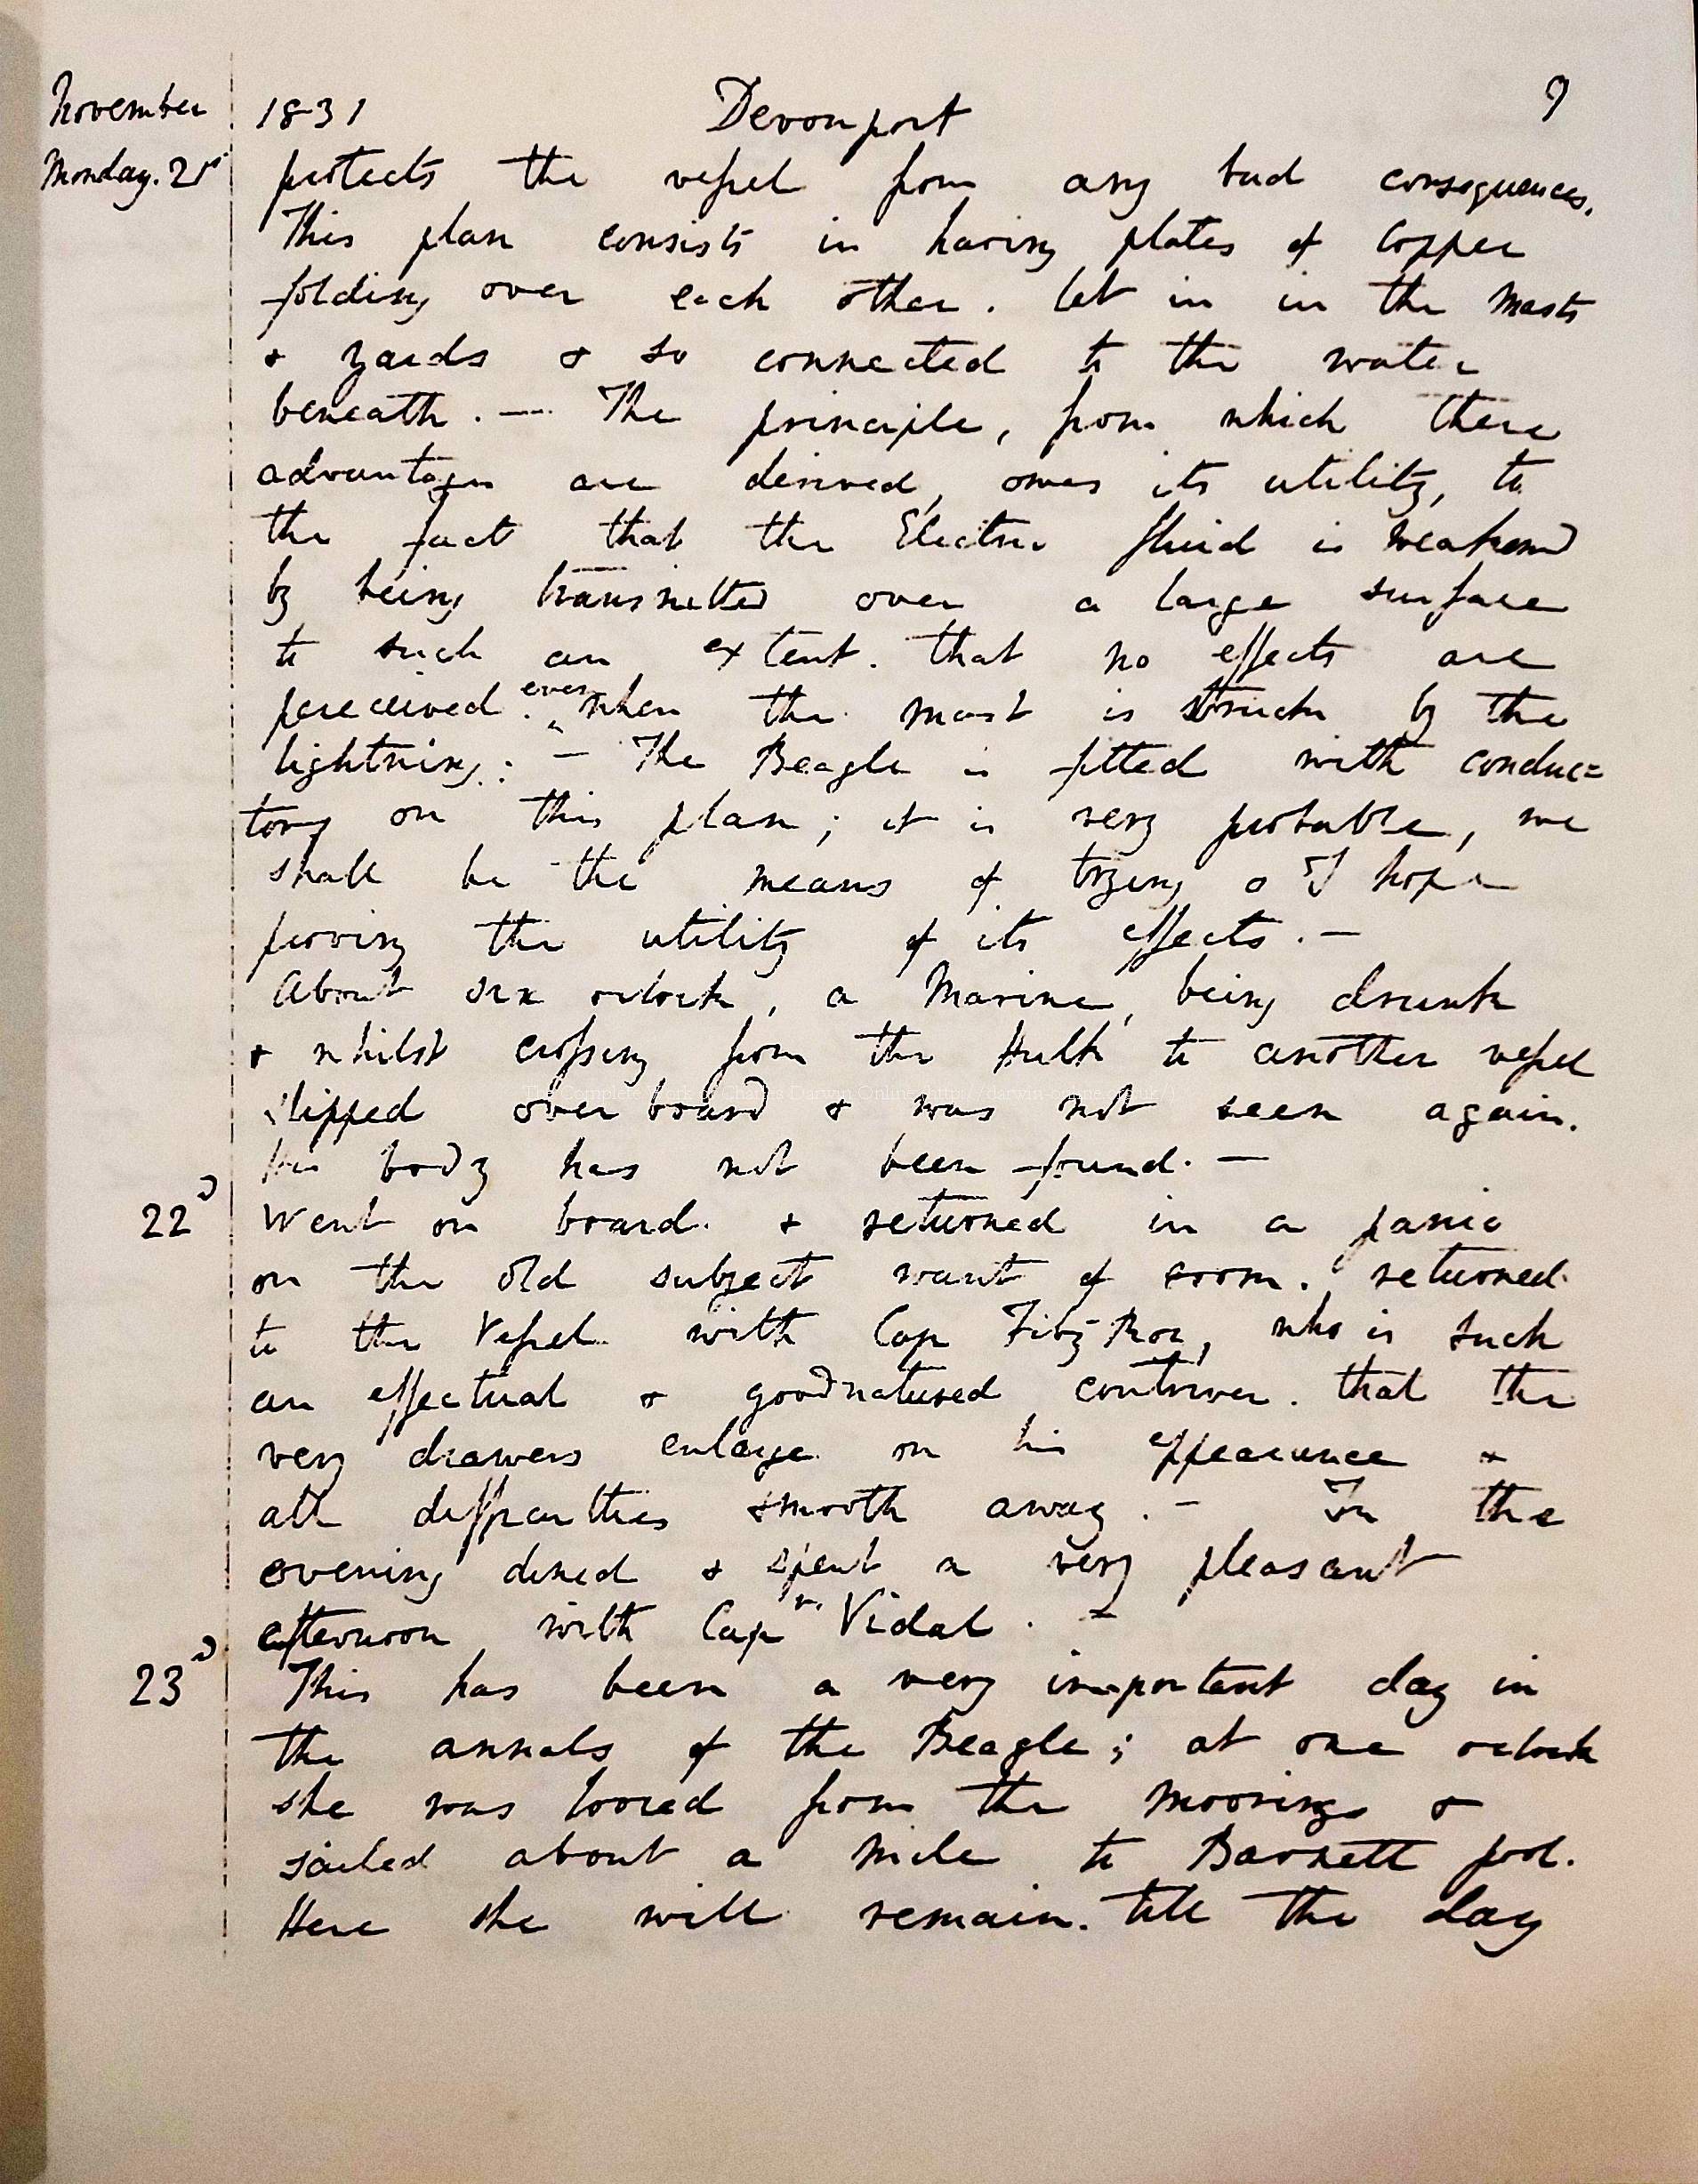 November 1831 Devonport 9
Monday. 21st protects the vessel from any bad consequences.
This plan consists in having plates of Copper
folding over each other. let in in the masts
& yards & so connected to the water
beneath. — The principle, from which these
advantages are derived, owes its utility, to
the fact that the Electric fluid is weakened
by being transmitted over a large surface
to such an extent. that no effects are
perceived. even when the mast is struck by the
lightning: — The Beagle is fitted with conduc=
tors on this plan; it is very probable, we
shall be the means of trying & I hope
proving the utility of its effects. —
About six oclock, a Marine, being drunk
& whilst crossing from the Hulk to another vessel
slipped over board & was not seen again.
His body has not been found. —
22d Went on board. & returned in a panic
on the old subject want of room. returned
to the Vessel with Cap FitzRoy, who is such
an effectual & goodnatured contriver. that the
very drawers enlarge on his appearance &
all difficulties smooth away. — In the
evening dined & spent a very pleasant
afternoon with Capn. Vidal. —
23d This has been a very important day in
the annals of the Beagle; at one oclock
she was loosed from the moorings &
sailed about a mile to Barnett pool.
Here she will remain. till the day